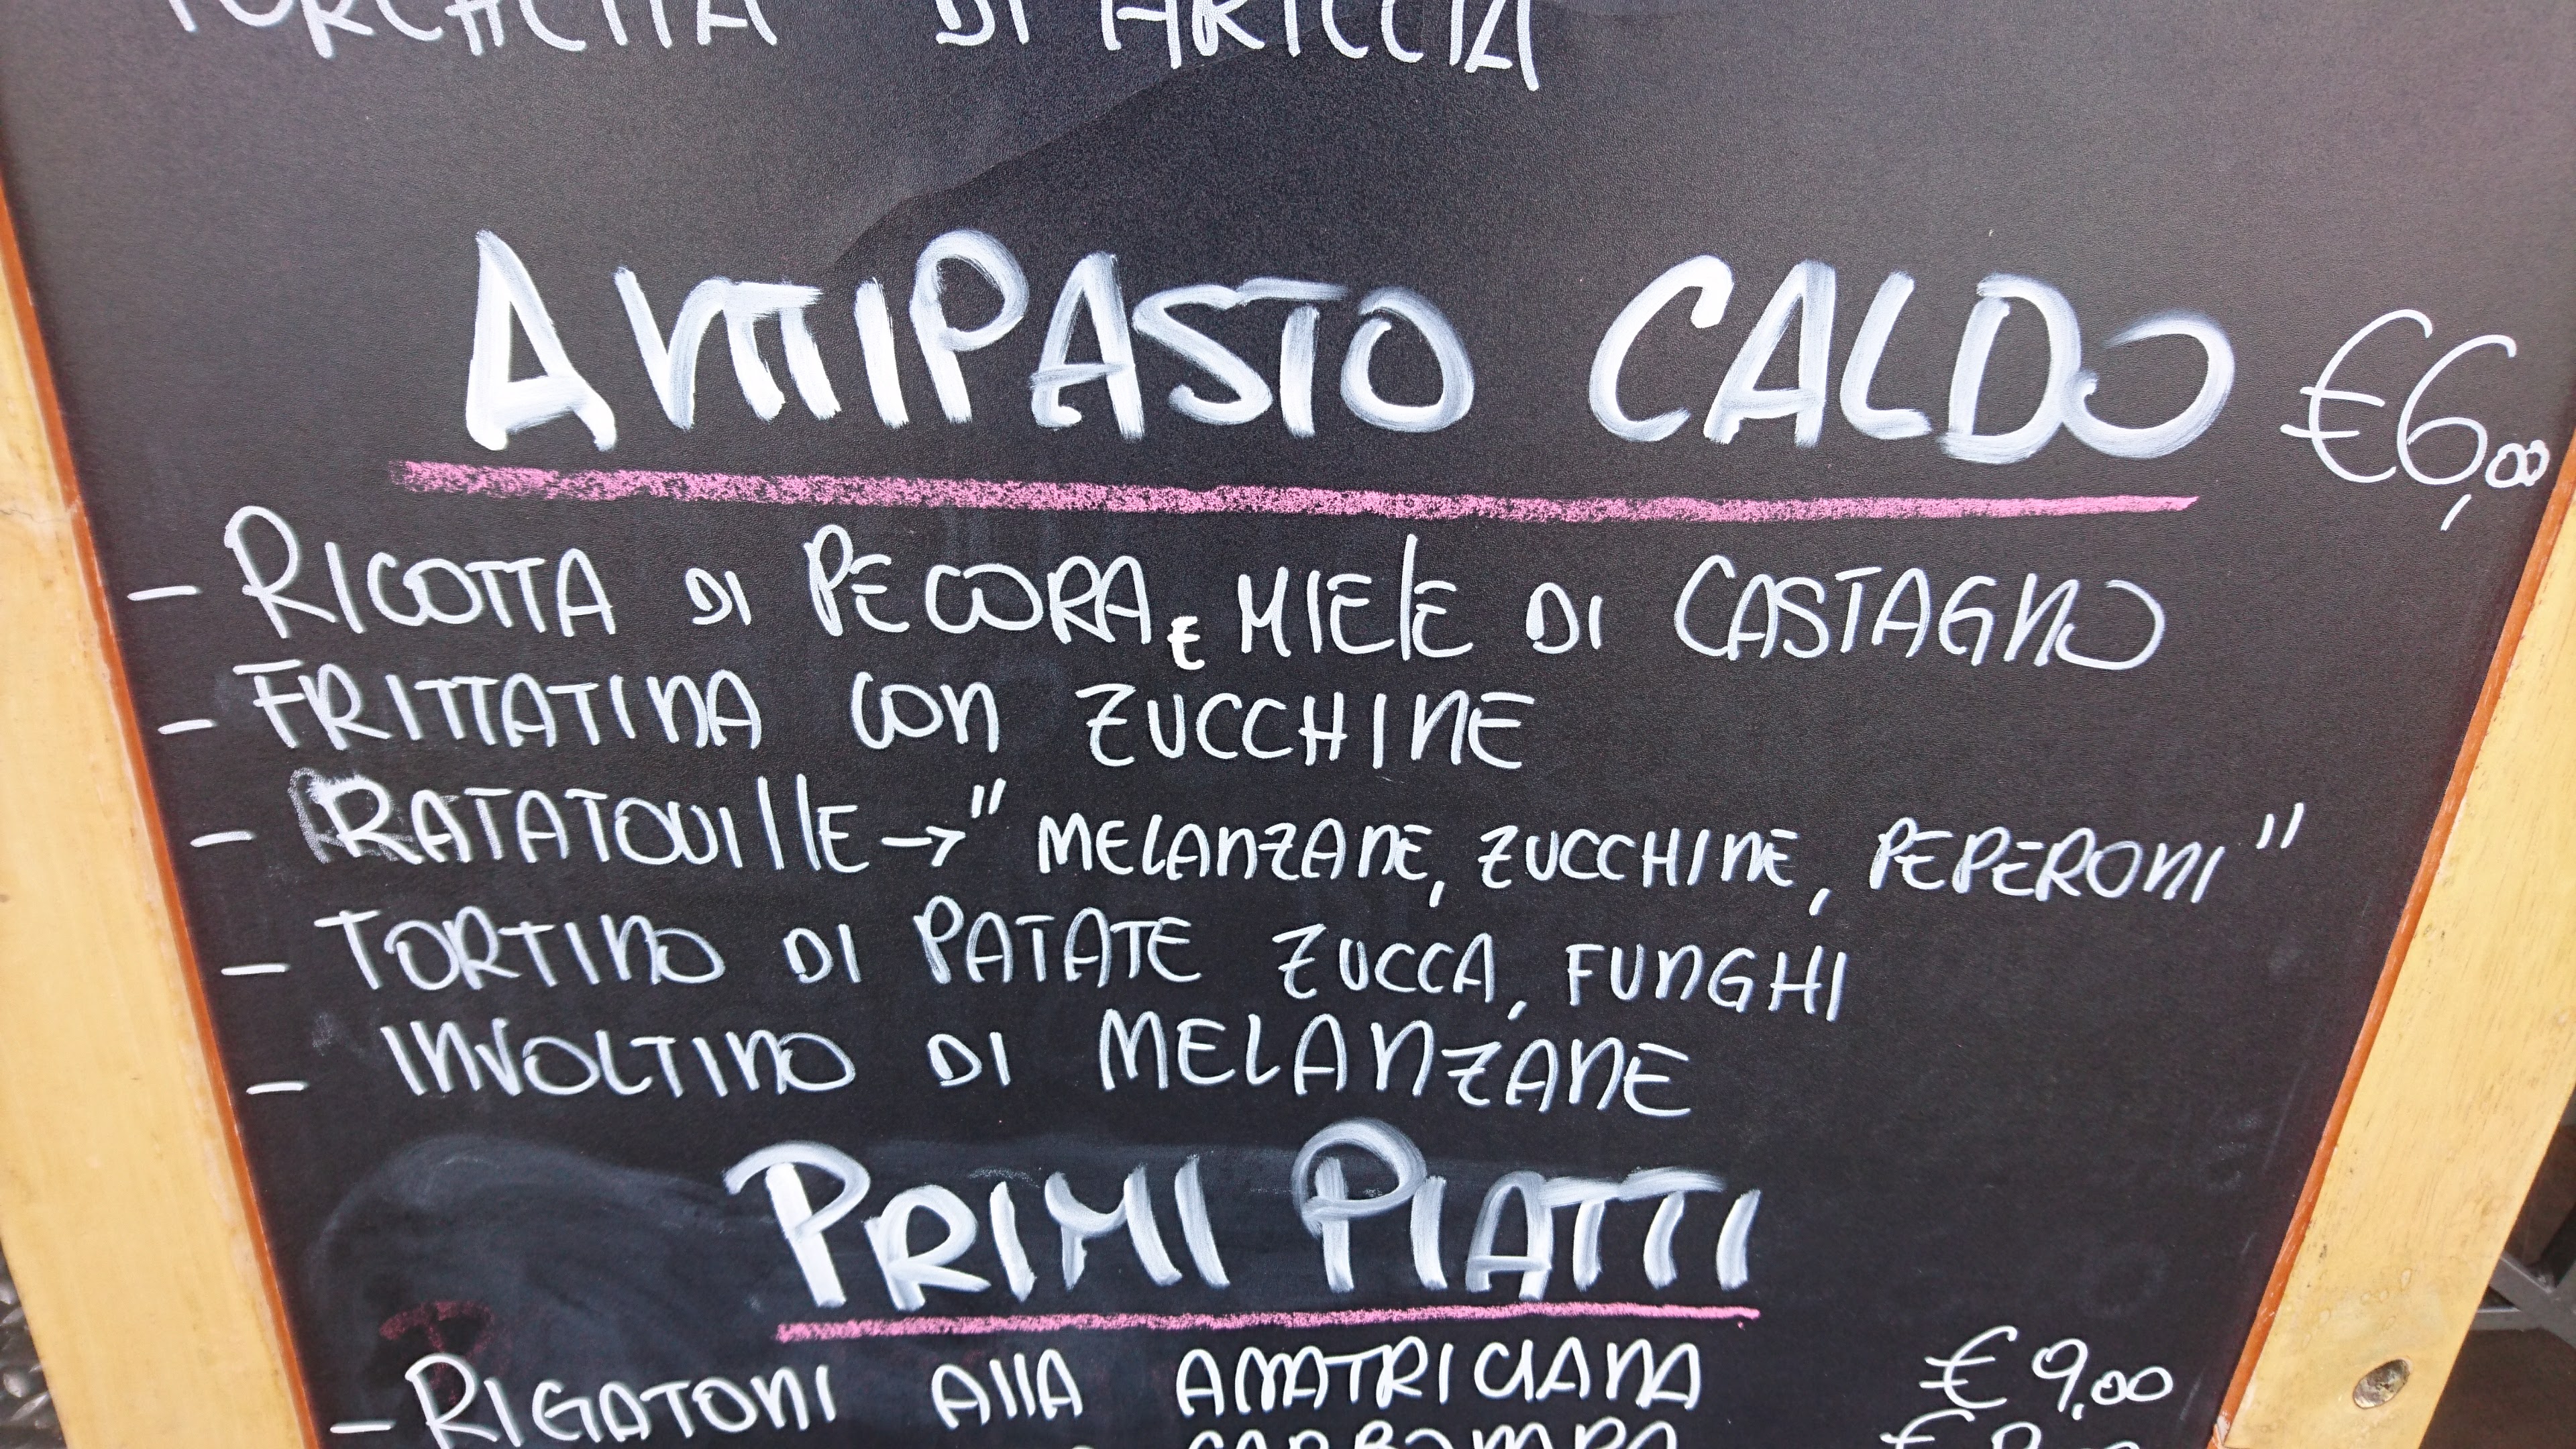 PORCHETTA DI ARICCIA
ANTIPASTO CALDO €6,00
- RICOTTA DI PECORA E MIELE DI CASTAGNO
- FRITTATINA CON ZUCCHINE
- RATATOUILLE → "MELANZANE, ZUCCHINE, PEPERONI"
- TORTINO DI PATATE ZUCCA, FUNGHI
- INVOLTINO DI MELANZANE
PRIMI PIATTI
- RIGATONI ALLA AMATRICIANA €9,00